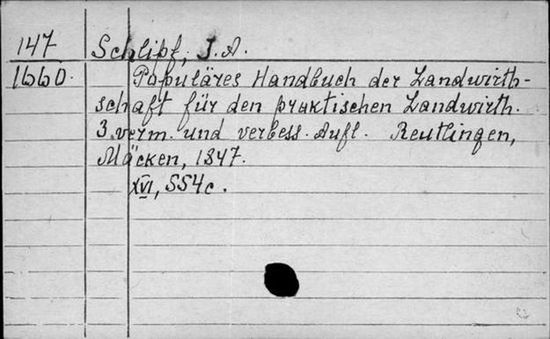 147 Schlipf, J. A.
1660. Populäres Handbuch der Landwirth-
schaft für den praktischen Landwirth.
3. verm. und verbess. Aufl. Reutlingen,
Mäcken, 1847.
XVI, 554 c.